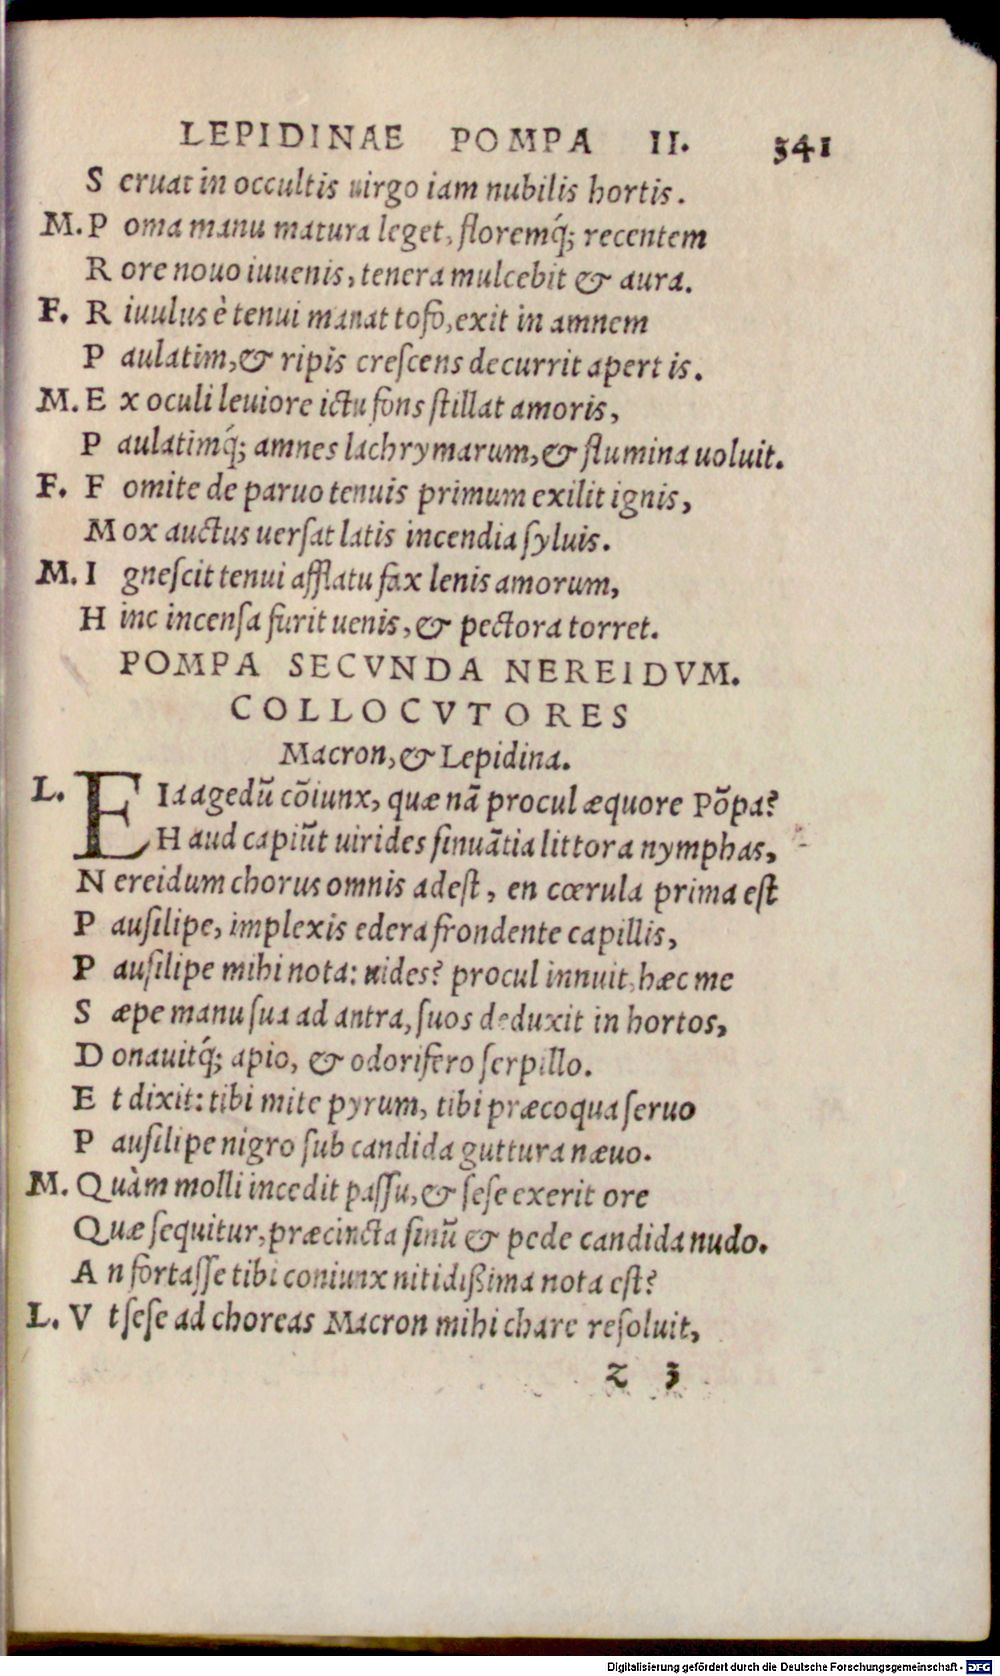 LEPIDINAE POMPA II. 341
S eruat in occultis uirgo iam nubilis hortis.
M. P oma manu matura leget, floremq́; recentem
R ore nouo iuuenis, tenera mulcebit & aura.
F. R iuulus è tenui manat tofo, exit in amnem
P aulatim, & ripis crescens decurrit apert is.
M. E x oculi leuiore ictu fons stillat amoris,
P aulatimq́; amnes lachrymarum, & flumina uoluit.
F. F omite de paruo tenuis primum exilit ignis,
M ox auctus uersat latis incendia syluis.
M. I gnescit tenui afflatu fax lenis amorum,
H inc incensa furit uenis, & pectora torret.
POMPA SECVNDA NEREIDVM.
COLLOCVTORES
Macron, & Lepidina.
L. EIa agedũ cõiunx, quæ nã procul æquore Põpa?
H aud capiũt uirides sinuãtia littora nymphas,
N ereidum chorus omnis adest, en cœrula prima est
P ausilipe, implexis edera frondente capillis,
P ausilipe mihi nota: uides? procul innuit, hæc me
S æpe manu sua ad antra, suos deduxit in hortos,
D onauitq́; apio, & odorifero serpillo.
E t dixit: tibi mite pyrum, tibi præcoqua seruo
P ausilipe nigro sub candida guttura næuo.
M. Quàm molli incedit passu, & sese exerit ore
Quæ sequitur, præcincta sinũ & pede candida nudo.
A n fortasse tibi coniunx nitidißima nota est?
L. V t sese ad choreas Macron mihi chare resoluit,
z 3
Digitalisierung gefördert durch die Deutsche Forschungsgemeinschaft - DFG